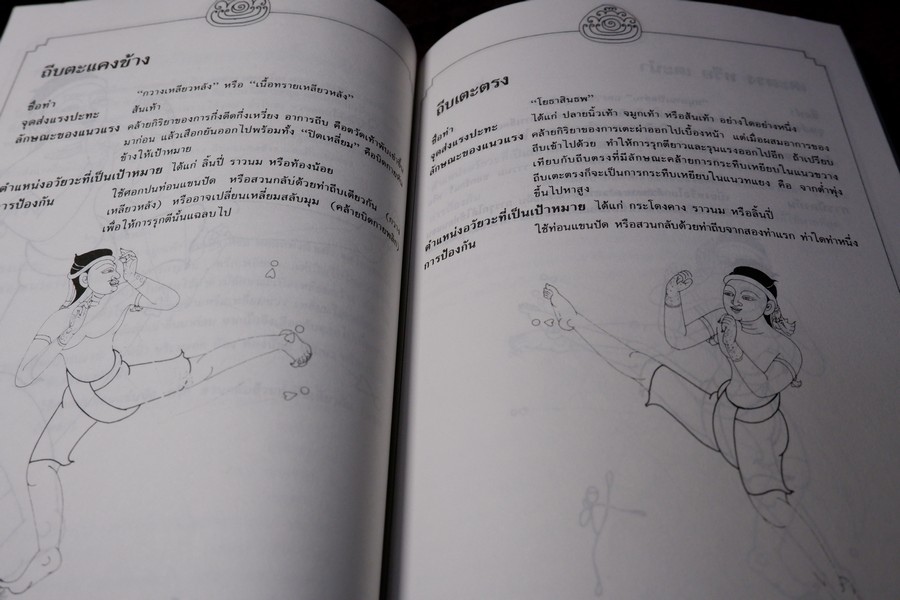 ถีบตะแคงข้าง
ชื่อท่า "กวางเหลียวหลัง" หรือ "เนื้อทรายเหลียวหลัง"
จุดส่งแรงปะทะ สันเท้า
ลักษณะของแนวแรง คล้ายกิริยาของการกึ่งดีดกึ่งเหวี่ยง อาการถีบ คือตวัดเท้า
มาก่อน แล้วเสือกยันออกไปพร้อมทั้ง "ปิดเหลี่ยม" คือบิดกาย
ข้างให้เป้าหมาย
ตำแหน่งอวัยวะที่เป็นเป้าหมาย ได้แก่ ลิ้นปี่ ราวนม หรือท้องน้อย
การป้องกัน ใช้ศอกปนท่อนแขนปัด หรือสวนกลับด้วยท่าถีบเดียวกัน (กวาง
เหลียวหลัง) หรืออาจเปลี่ยนเหลี่ยมสลับมุม (คล้ายบิดกายหลัก)
เพื่อให้การรุกตีนั้นแฉลบไป
ถีบเตะตรง
ชื่อท่า "โยธาสินธพ"
จุดส่งแรงปะทะ ได้แก่ ปลายนิ้วเท้า จมูกเท้า หรือสันเท้า อย่างใดอย่างหนึ่ง
ลักษณะของแนวแรง คล้ายกิริยาของการเตะผ่าออกไปเบื้องหน้า แต่เมื่อผสมอาการของ
ถีบเข้าไปด้วย ทำให้การรุกตียาวและรุนแรงออกไปอีก ถ้าเปรียบ
เทียบกับถีบตรงที่มีลักษณะคล้ายการกระทืบเหยียบในแนวขวาง
ถีบเตะตรงก็จะเป็นการกระทืบเหยียบในแนวทแยง คือ จากต่ำพุ่ง
ขึ้นไปหาสูง
ตำแหน่งอวัยวะที่เป็นเป้าหมาย ได้แก่ กระโดงคาง ราวนม หรือลิ้นปี่
การป้องกัน ใช้ท่อนแขนปัด หรือสวนกลับด้วยท่าถีบจากสองท่าแรก ท่าใดท่าหนึ่ง